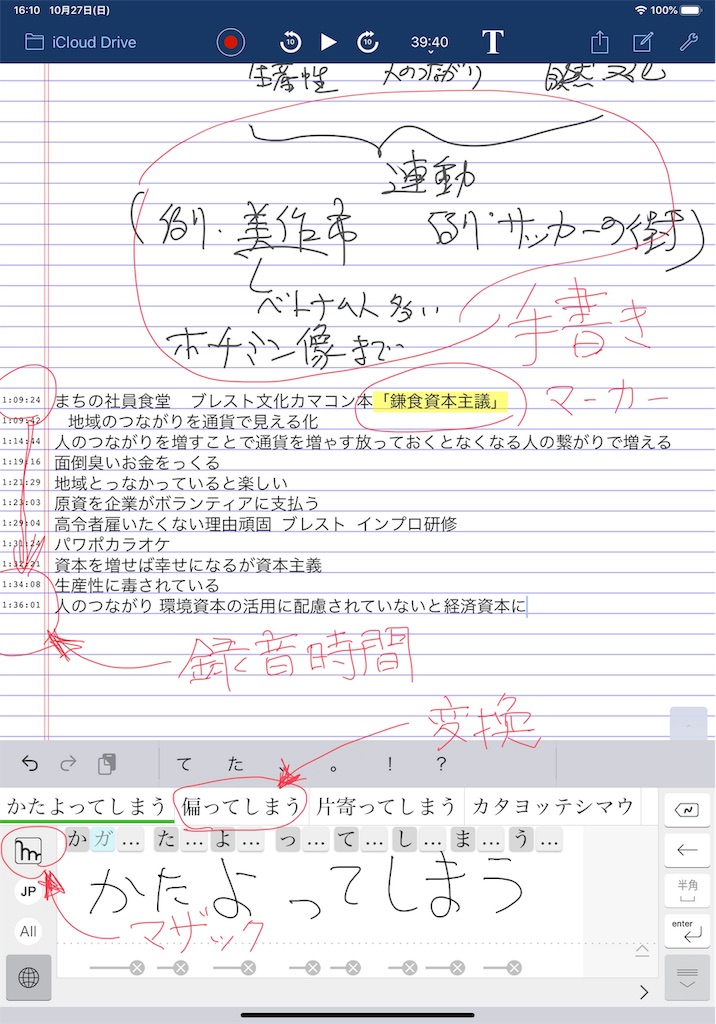 16:10 10月27日(日) 100%
iCloud Drive 10 10 39:40 T
生産性 人のつながり 自然 文化
連動
(例り・美作市 例り・サッカーの街)
ベトナム人多い
ホーチミン像まで
手書き
1:09:24 まちの社員食堂 ブレスト文化カマコン本「鎌食資本主議」 マーカー
1:09:42 地域のつながりを通貨で見える化
1:14:44 人のつながりを増すことで通貨を増やす放っておくとなくなる人の繋がりで増える
1:19:16 面倒臭いお金をっくる
1:21:29 地域とっなかっていると楽しい
1:23:03 原資を企業がボランティアに支払う
1:29:04 高令者雇いたくない理由頑固 ブレスト インプロ研修
1:31:24 パワポカラオケ
1:32:21 資本を増せば幸せになるが資本主義
1:34:08 生産性に毒されている
1:36:01 人のつながり 環境資本の活用に配慮されていないと経済資本に
録音時間
変換
て た 、 。 ! ?
かたよってしまう 偏ってしまう 片寄ってしまう カタヨッテシマウ
か ガ … た … よ … っ … て … し … ま … う …
かたよってしまう
JP
マザック
All
半角
enter